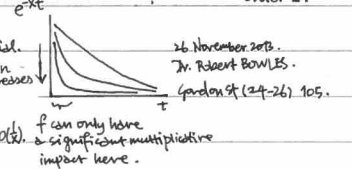 e^-xt
26 November 2013.
Dr. Robert BOWLES.
Gordon St (24-26) 105.
t
f can only have
a significant multiplicative
impact here.